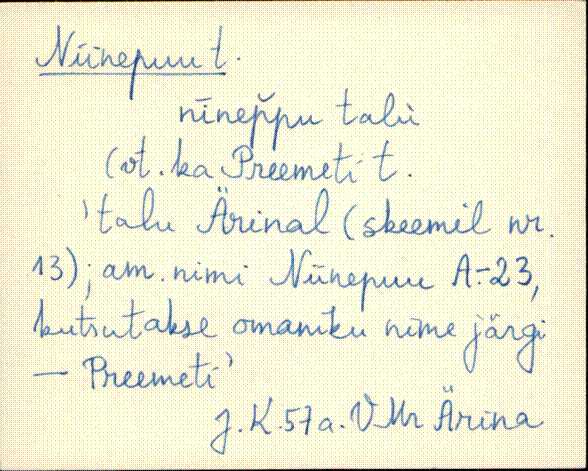 Niinepuu t.
nīnep̆pu talu
(vt. ka Preemeti t.
'talu Ärinal (skeemil nr.
13); am. nimi Niinepuu A-23,
kutsutakse omaniku nime järgi
— Preemeti'
J.K. 57a. VMr Ärina